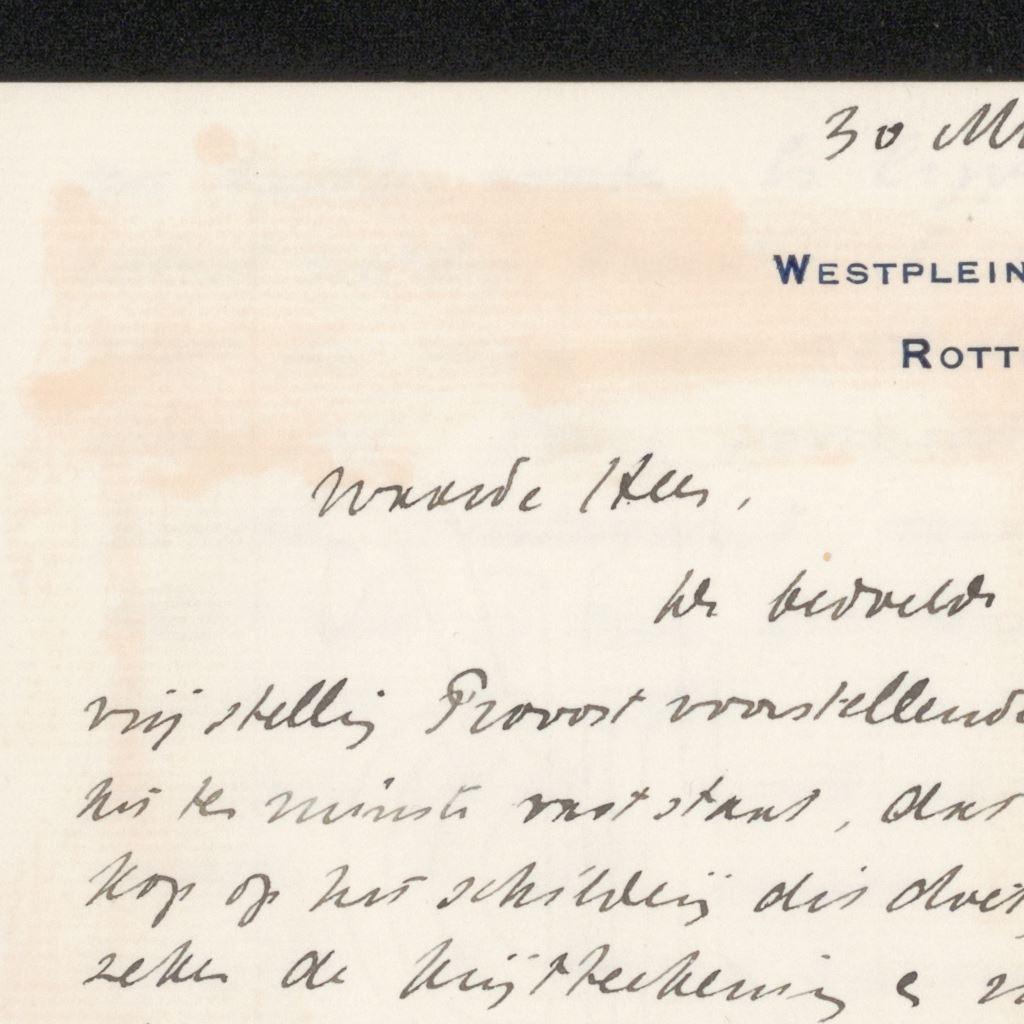 30 M
WESTPLEIN
ROTT
Waarde Heer,
De bedoelde
vrij stellig Provost voorstellende
het ten minste vast staat, dat
kop op het schilderij die doet
zeker de krijtteekening is